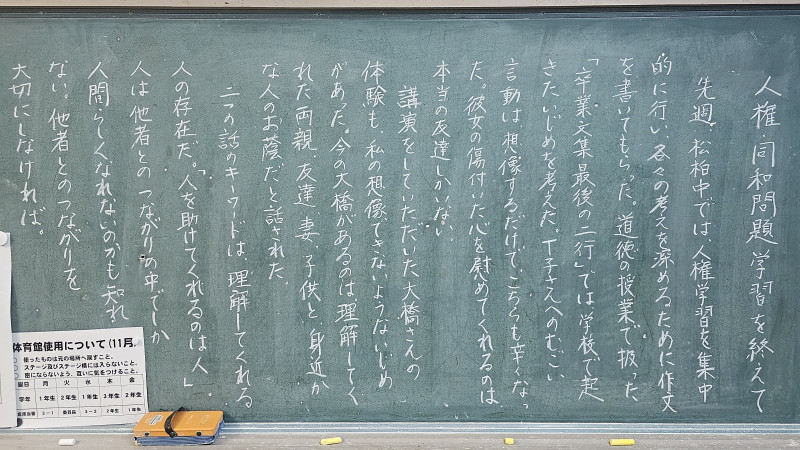 人権・同和問題学習を終えて
先週、松柏中では、人権学習を集中
的に行い、各々の考えを深めるために作文
を書いてもらった。道徳の授業で扱った
「卒業文集最後の二行」では学校で起
きたいじめを考えた。T子さんへのむごい
言動は想像するだけで、こちらも辛くなっ
た。彼女の傷付いた心を慰めてくれるのは
本当の友達しかいない。
講演をしていただいた大橋さんの
体験も、私の想像できないようないじめ
があった。今の大橋があるのは、理解してく
れた両親、友達、妻、子供と、身近か
な人のお蔭だと話された。
二つの話のキーワードは、理解してくれる
人の存在だ。「人を助けてくれるのは人」
人は他者とのつながりの中でしか
人間らしくなれないのかも知れ
ない。他者とのつながりを
大切にしなければ。
体育館使用について(11月)
使ったものは元の場所へ戻すこと。
ステージ及びステージ横には入らないこと。
密にならないよう、互いに気をつけること。
曜日 月 火 水 木 金
学年 1年生 2年生 1年生 3年生 2年生
3-1 委員長 3-2 2年生 1年生